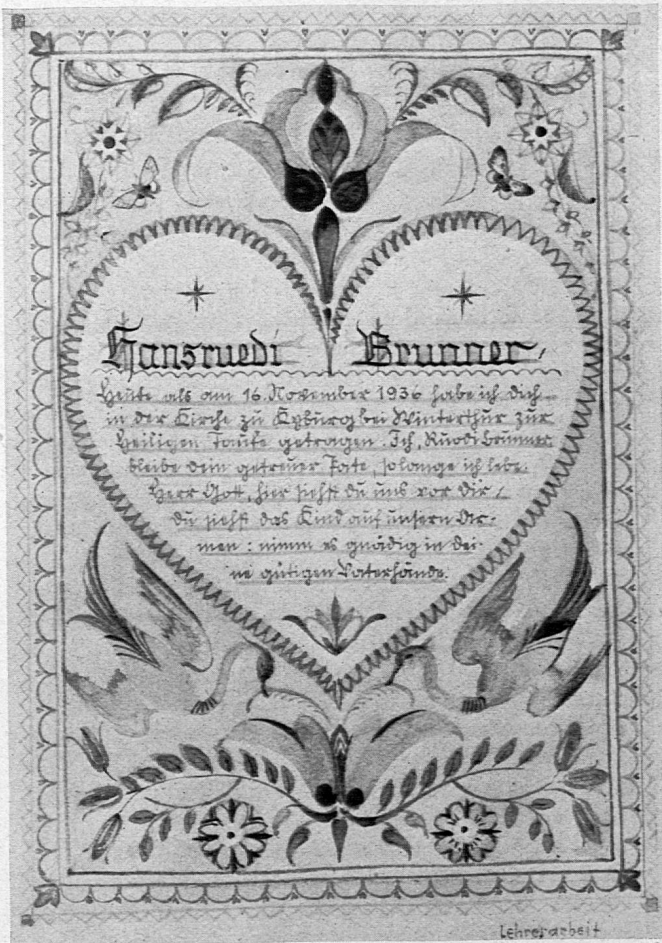 Hansruedi Brunner,
Heute als am 16. November 1936 habe ich dich
in der Kirche zu Kyburg bei Winterthur zur
Heiligen Taufe getragen. Ich, Ruodi Brunner
bleibe dein getreuer Tate, solange ich lebe.
Herr Gott, hier siehst du uns vor dir /
du siehst das Kind auf unsern Ar-
men: nimm es gnädig in dei-
ne gütigen Vaterhände.
Lehrerarbeit